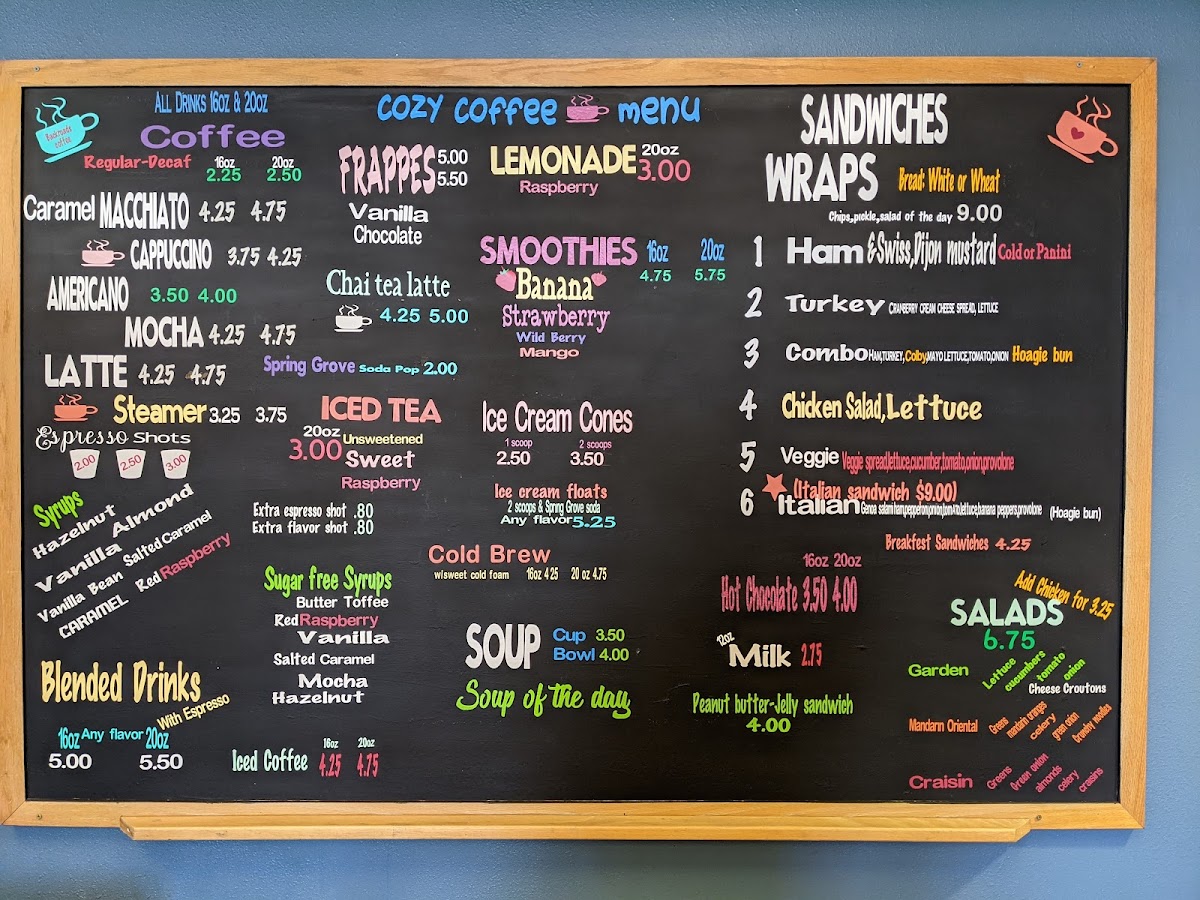 Backroads
coffee
ALL DRINKS 16oz & 20oz
Coffee
Regular-Decaf 16oz 20oz
2.25 2.50
Caramel MACCHIATO 4.25 4.75
CAPPUCCINO 3.75 4.25
AMERICANO 3.50 4.00
MOCHA 4.25 4.75
LATTE 4.25 4.75
Steamer 3.25 3.75
Espresso Shots
2.00 2.50 3.00
Syrups
Hazelnut Almond
Vanilla Salted Caramel
Vanilla Bean Red Raspberry
CARAMEL
Blended Drinks
With Espresso
16oz Any flavor 20oz
5.00 5.50
cozy coffee menu
FRAPPES 5.00
5.50
Vanilla
Chocolate
Chai tea latte
4.25 5.00
Spring Grove Soda Pop 2.00
ICED TEA
20oz
3.00 Unsweetened
Sweet
Raspberry
Extra espresso shot .80
Extra flavor shot .80
Sugar free Syrups
Butter Toffee
Red Raspberry
Vanilla
Salted Caramel
Mocha
Hazelnut
Iced Coffee 16oz 20oz
4.25 4.75
LEMONADE 20oz
3.00
Raspberry
SMOOTHIES 16oz 20oz
4.75 5.75
Banana
Strawberry
Wild Berry
Mango
Ice Cream Cones
1 scoop 2 scoops
2.50 3.50
Ice cream floats
2 scoops & Spring Grove soda
Any flavor 5.25
Cold Brew
w/sweet cold foam 16oz 4.25 20 oz 4.75
SOUP Cup 3.50
Bowl 4.00
Soup of the day
SANDWICHES
WRAPS Bread: White or Wheat
Chips,pickle,salad of the day 9.00
1 Ham &Swiss,Dijon mustard Cold or Panini
2 Turkey CRANBERRY CREAM CHEESE SPREAD, LETTUCE
3 Combo HAM,TURKEY, Colby,MAYO LETTUCE,TOMATO,ONION Hoagie bun
4 Chicken Salad,Lettuce
5 Veggie Veggie spread,lettuce,cucumber,tomato,onion,provolone
(Italian sandwich $9.00)
6 Italian Genoa salami,ham,pepperoni,onion,tomato,lettuce,banana peppers,provolone (Hoagie bun)
Breakfest Sandwiches 4.25
16oz 20oz
Hot Chocolate 3.50 4.00
12oz
Milk 2.75
Peanut butter-Jelly sandwich
4.00
Add Chicken for 3.25
SALADS
6.75
Garden Lettuce cucumbers tomato onion
Cheese Croutons
Mandarin Oriental Greens mandarin oranges celery green onion Crunchy noodles
Craisin Greens Green onion almonds celery craisins